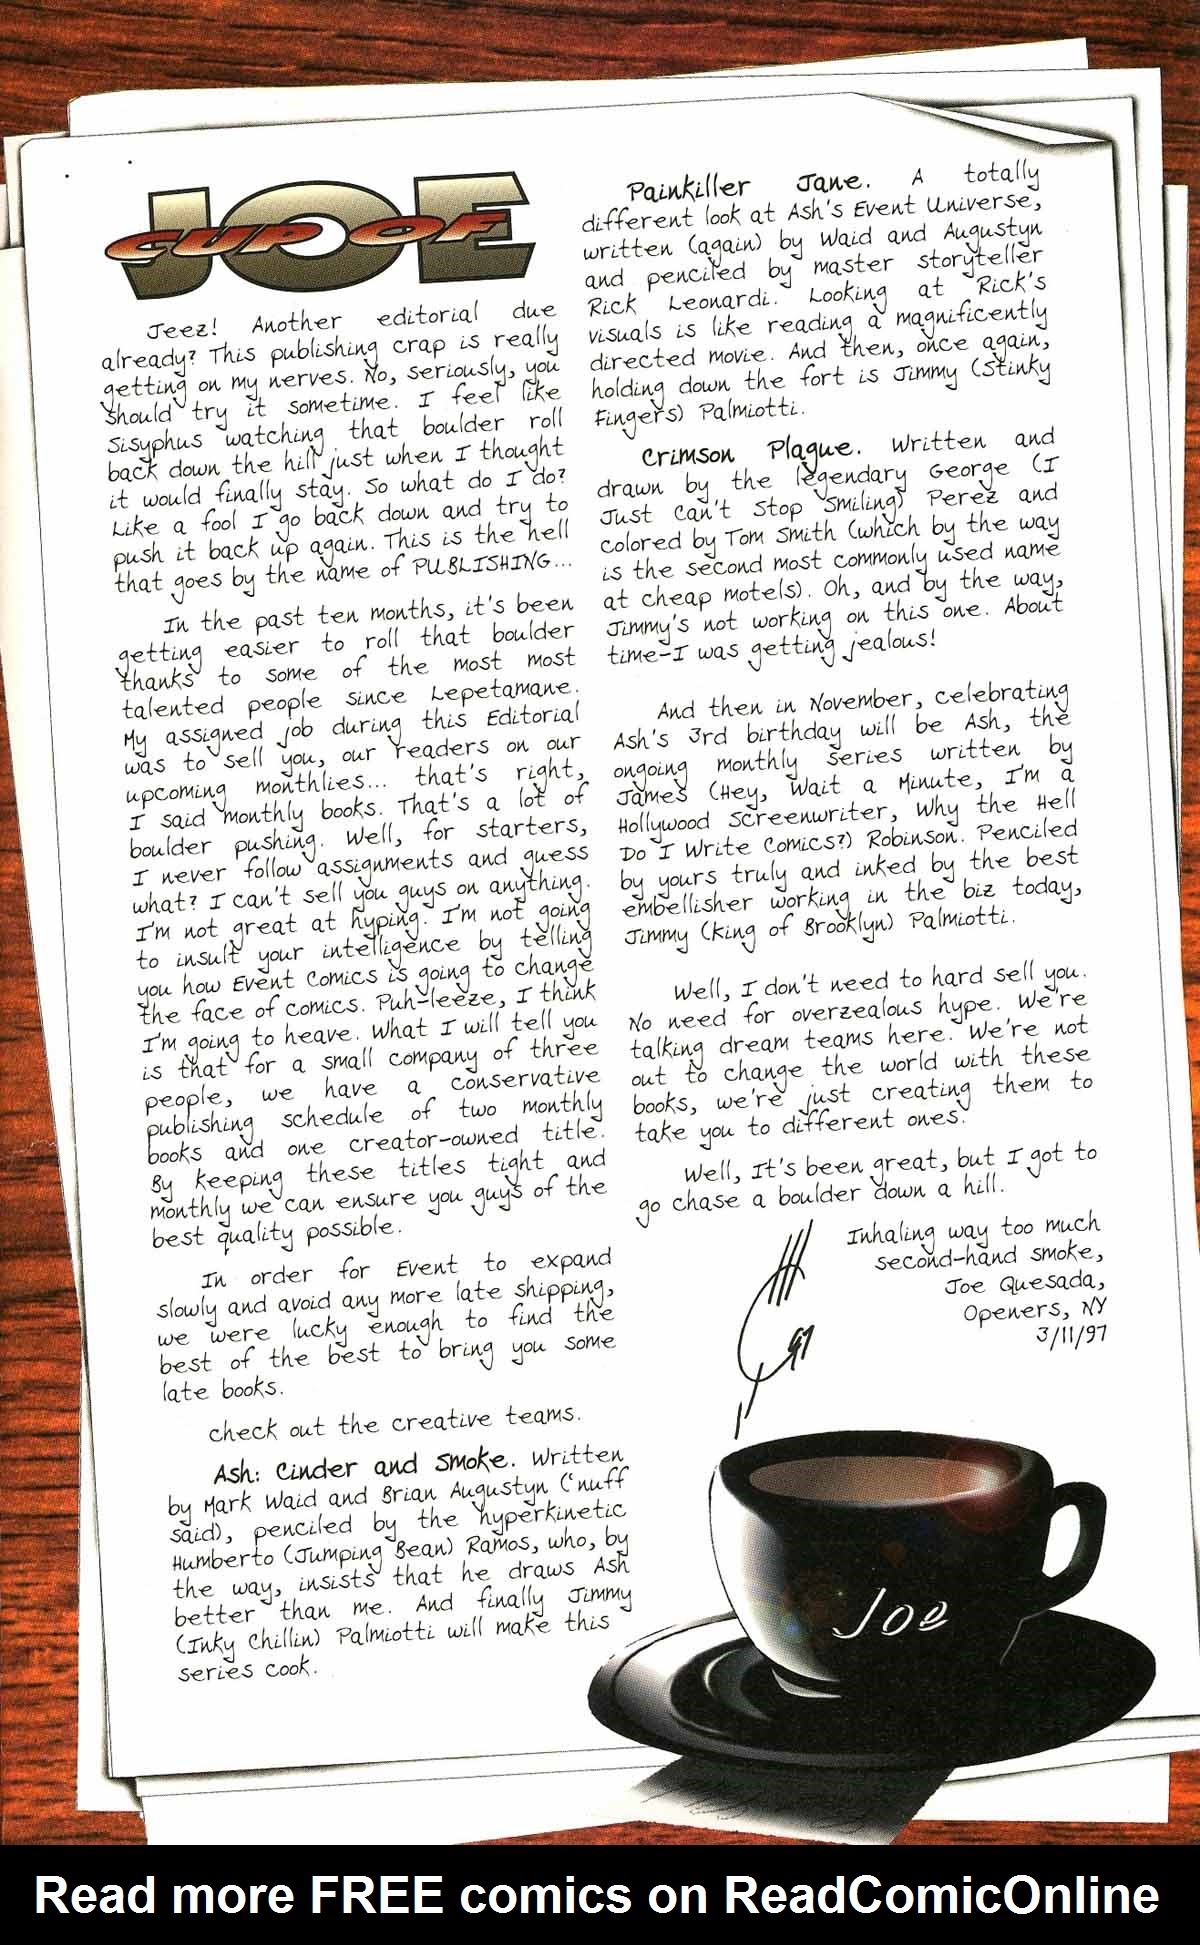 CUP OF JOE
Jeez! Another editorial due
already? This publishing crap is really
getting on my nerves. No, seriously, you
should try it sometime. I feel like
Sisyphus watching that boulder roll
back down the hill just when I thought
it would finally stay. So what do I do?
Like a fool I go back down and try to
push it back up again. This is the hell
that goes by the name of PUBLISHING...
In the past ten months, it's been
getting easier to roll that boulder
thanks to some of the most most
talented people since Lepetamane.
My assigned job during this Editorial
was to sell you, our readers on our
upcoming monthlies... that's right,
I said monthly books. That's a lot of
boulder pushing. Well, for starters,
I never follow assignments and guess
what? I can't sell you guys on anything.
I'm not great at hyping. I'm not going
to insult your intelligence by telling
you how Event Comics is going to change
the face of comics. Puh-leeze, I think
I'm going to heave. What I will tell you
is that for a small company of three
people, we have a conservative
publishing schedule of two monthly
books and one creator-owned title.
By keeping these titles tight and
monthly we can ensure you guys of the
best quality possible.
In order for Event to expand
slowly and avoid any more late shipping,
we were lucky enough to find the
best of the best to bring you some
late books.
check out the creative teams.
Ash: Cinder and Smoke. Written
by Mark Waid and Brian Augustyn ('nuff
said), penciled by the hyperkinetic
Humberto (Jumping Bean) Ramos, who, by
the way, insists that he draws Ash
better than me. And finally Jimmy
(Inky Chillin) Palmiotti will make this
series cook.
Painkiller Jane. A totally
different look at Ash's Event Universe,
written (again) by Waid and Augustyn
and penciled by master storyteller
Rick Leonardi. Looking at Rick's
visuals is like reading a magnificently
directed movie. And then, once again,
holding down the fort is Jimmy (Stinky
Fingers) Palmiotti.
Crimson Plague. Written and
drawn by the legendary George (I
Just Can't Stop Smiling) Perez and
colored by Tom Smith (which by the way
is the second most commonly used name
at cheap motels). Oh, and by the way,
Jimmy's not working on this one. About
time-I was getting jealous!
And then in November, celebrating
Ash's 3rd birthday will be Ash, the
ongoing monthly series written by
James (Hey, Wait a Minute, I'm a
Hollywood Screenwriter, Why the Hell
Do I Write Comics?) Robinson. Penciled
by yours truly and inked by the best
embellisher working in the biz today,
Jimmy (King of Brooklyn) Palmiotti.
Well, I don't need to hard sell you.
No need for overzealous hype. We're
talking dream teams here. We're not
out to change the world with these
books, we're just creating them to
take you to different ones.
Well, It's been great, but I got to
go chase a boulder down a hill.
Inhaling way too much
second-hand smoke,
Joe Quesada,
Openers, NY
3/11/97
97
Joe
Read more FREE comics on ReadComicOnline